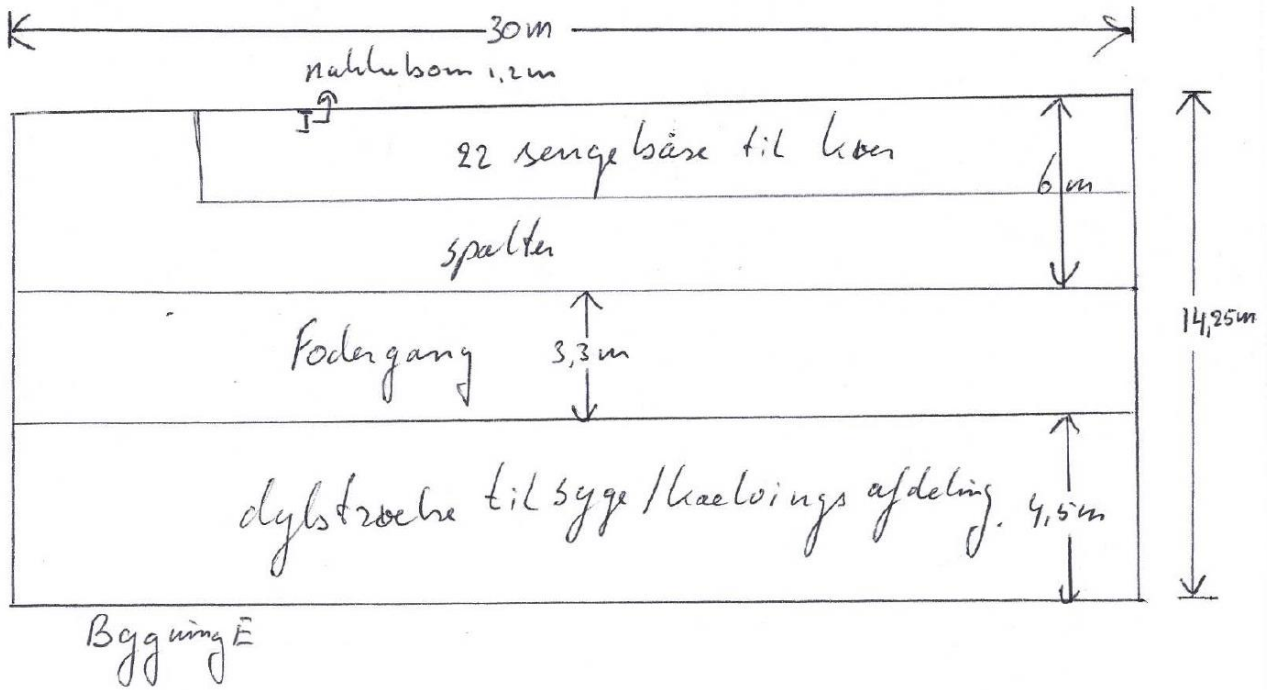 30m
nakkebom 1,2m
22 sengebåse til køer
6m
spalter
14,25m
Fodergang 3,3m
dybstrøelse til syge/kælvings afdeling. 4,5m
Bygning E